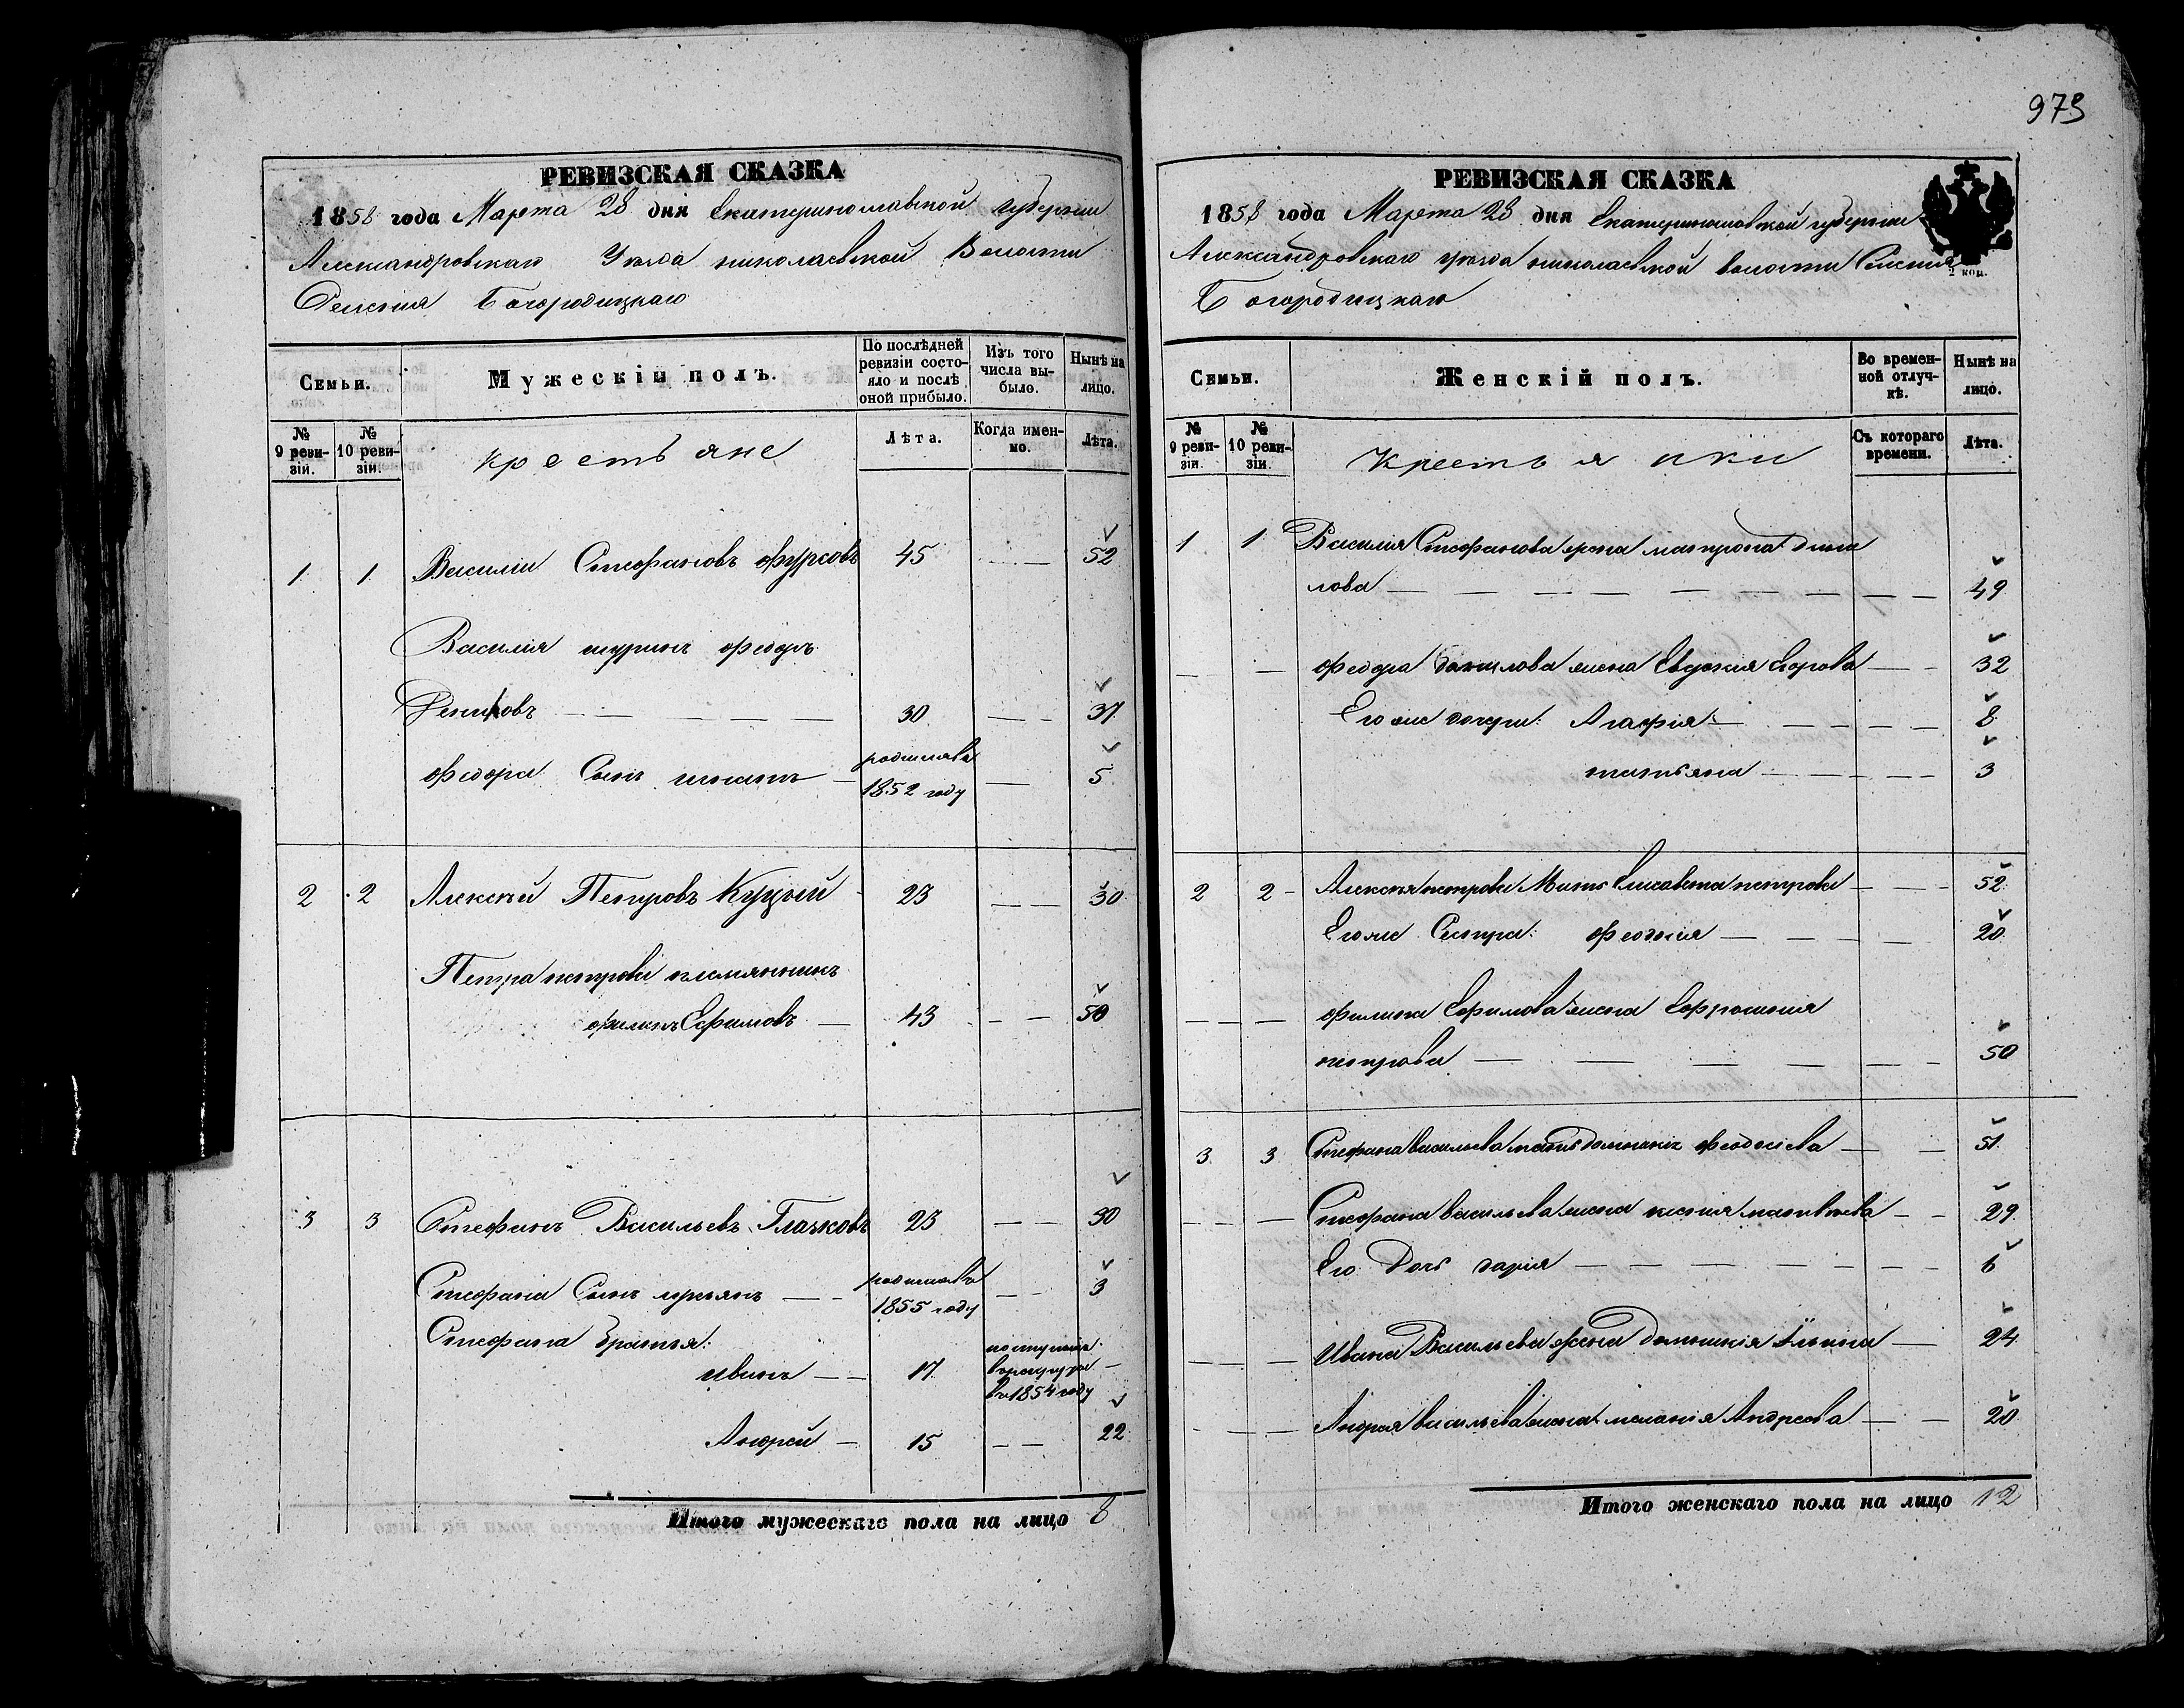 РЕВИЗСКАЯ СКАЗКА
1858 года Марта 28 дня Екатеринославской губернии
Александровскаго Уезда николаевской Волости
Селения Богородицкаго
Семьи.
Мужескій полъ.
По послѣдней ревизіи состояло и послѣ оной прибыло.
Изъ того числа выбыло.
Нынѣ на лицо.
№ 9 ревизіи.
№ 10 ревизіи.
крестьяне
Лѣта.
Когда именно.
Лѣта.
1 1 Василій Стефановъ Фурсовъ 45 — 52
Василія шуринъ Феодръ
30 — 37
Федора Сынъ игнатъ — родился въ 1852 году — 5
2 2 Алексѣй Петровъ Куцый 23 — 30
Петра петрова племянникъ
филипъ Ефимовъ — 43 — 50
3 3 Стефанъ Васильевъ Глазковъ 23 — 30
Стефана Сынъ лукьянъ — родился въ 1855 году — 3
Стефана братья:
иванъ — 17 поступилъ в рекруты въ 1854 году —
Андрей — 15 — 22
Итого мужескаго пола на лицо 8
973
РЕВИЗСКАЯ СКАЗКА
1858 года Марта 28 дня Екатеринославской губернии
Александровскаго уезда николаевской волости Селения
Богородицкаго
2 коп.
Семьи.
Женскій полъ.
Во временной отлучкѣ.
Нынѣ на лицо.
№ 9 ревизіи.
№ 10 ревизіи.
Крестьянки
Съ котораго времени.
Лѣта.
1 1 Василія Стефанова жена матрона Дани
лова — 49
— — феодра Данилова жена Евдокия Егорова — 32
Его же дочери: Агафия — 8
татьяна — 3
2 2 - Алексея петрова Мать Елисавета петрова — 52
Его же Сестра: феодосия — 20
— — филипа Ефимова жена Ефросиния
петрова — 50
3 3 Стефана васильева мать домникия феодосіева — 51
— — Стефана васильева жена ксения матвѣева — 29
Его Дочь дария — 6
— — Ивана Васильева жена Домникія Ильина — 24
— — Андрея васильева жена мелания Андреева — 20
Итого женскаго пола на лицо 12